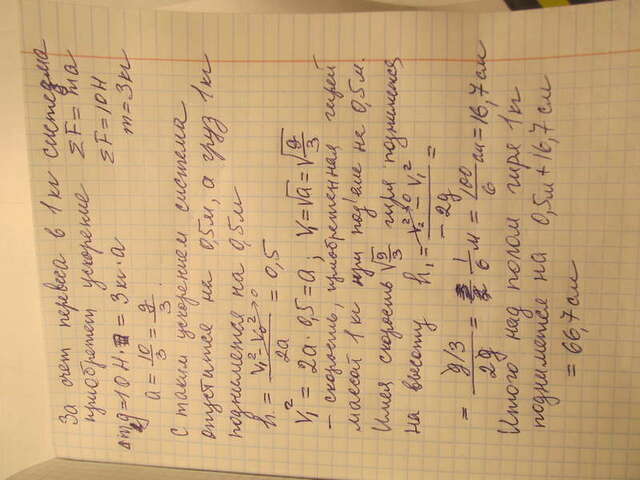 За счет перевеса в 1 кг система
приобретет ускорение ΣF = ma
g = 10 Н · = 3 кг · a ΣF = 10 Н
a = 10/3 = g/3 . m = 3 кг
С таким ускорением система
опустится на 0,5 м, а груз 1 кг
поднимется на 0,5 м
h = (V₁² - V₀²→0)/2a = 0,5
V₁² = 2a · 0,5 = a ; V₁ = √a = √(g/3)
- скорость, приобретенная гирей
массой 1 кг при под'еме на 0,5 м.
Имея скорость √(g/3) гиря поднимется
на высоту h₁ = (V₂²→0 - V₁²)/(-2g) =
= (g/3)/2g = 1/6 м = 100/6 см = 16,7 см
Итого над полом гиря 1 кг
поднимется на 0,5 м + 16,7 см
= 66,7 см